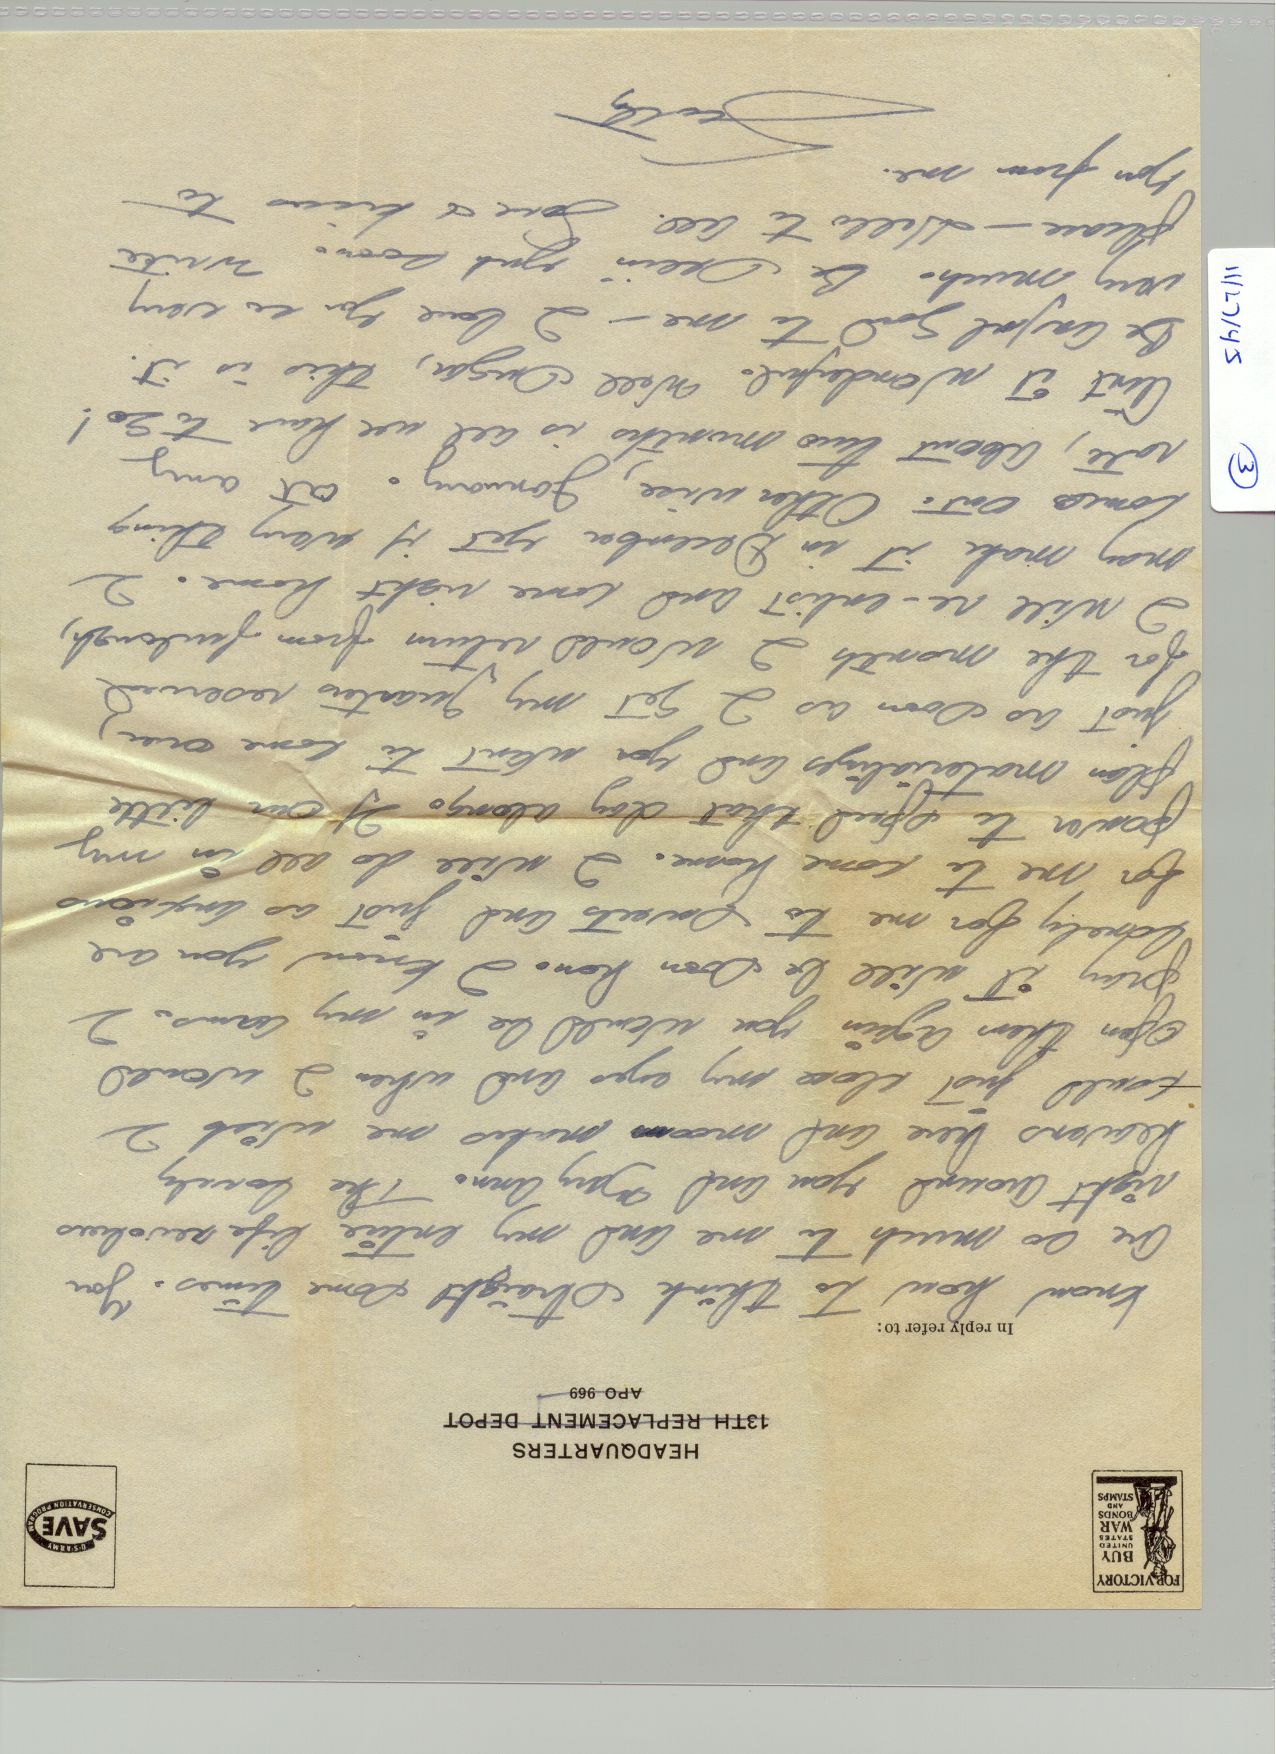 FOR VICTORY
BUY
UNITED
STATES
WAR
BONDS
AND
STAMPS
U·S·ARMY
SAVE
CONSERVATION PROGRAM
HEADQUARTERS
13TH REPLACEMENT DEPOT
APO 969
In reply refer to:
know how to think straight some times. You
are so much to me and my entire life revolves
right around you and Mary Ann. The lovely
heavens here and moon makes me wish I
could just close my eyes and when I would
open them again you would be in my arms. I
pray it will be soon hon. I know you are
lonely for me to sweets and just as anxious
for me to come home. I will do all in my
power to speed that day along. If our little
plan materializes and you want to come over,
just as soon as I get my quarters reserved
for the month I would return from furlough,
I will re-enlist and come right home. I
may make it in December yet if every thing
comes out. Otherwise, January. At any
rate, about two months is all we have to go!
Aint it wonderful. Well Sugar, this is it.
Be good to me – I love you so very
very much. Be Seein' you soon. Write
please – Hello to all. Love & kisses to
you from me.
11/27/45
3